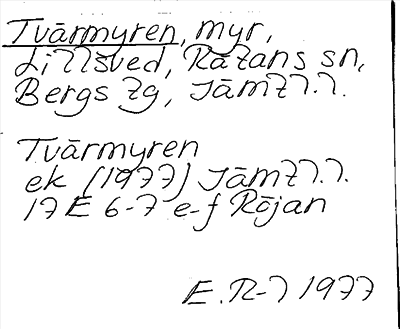 Tvärmyren, myr,
Lillsved, Rätans sn,
Bergs tg, Jämtl.l.
Tvärmyren
ek (1977) Jämtl.l.
17 E 6-7 e-f Röjan
E.R-l 1977